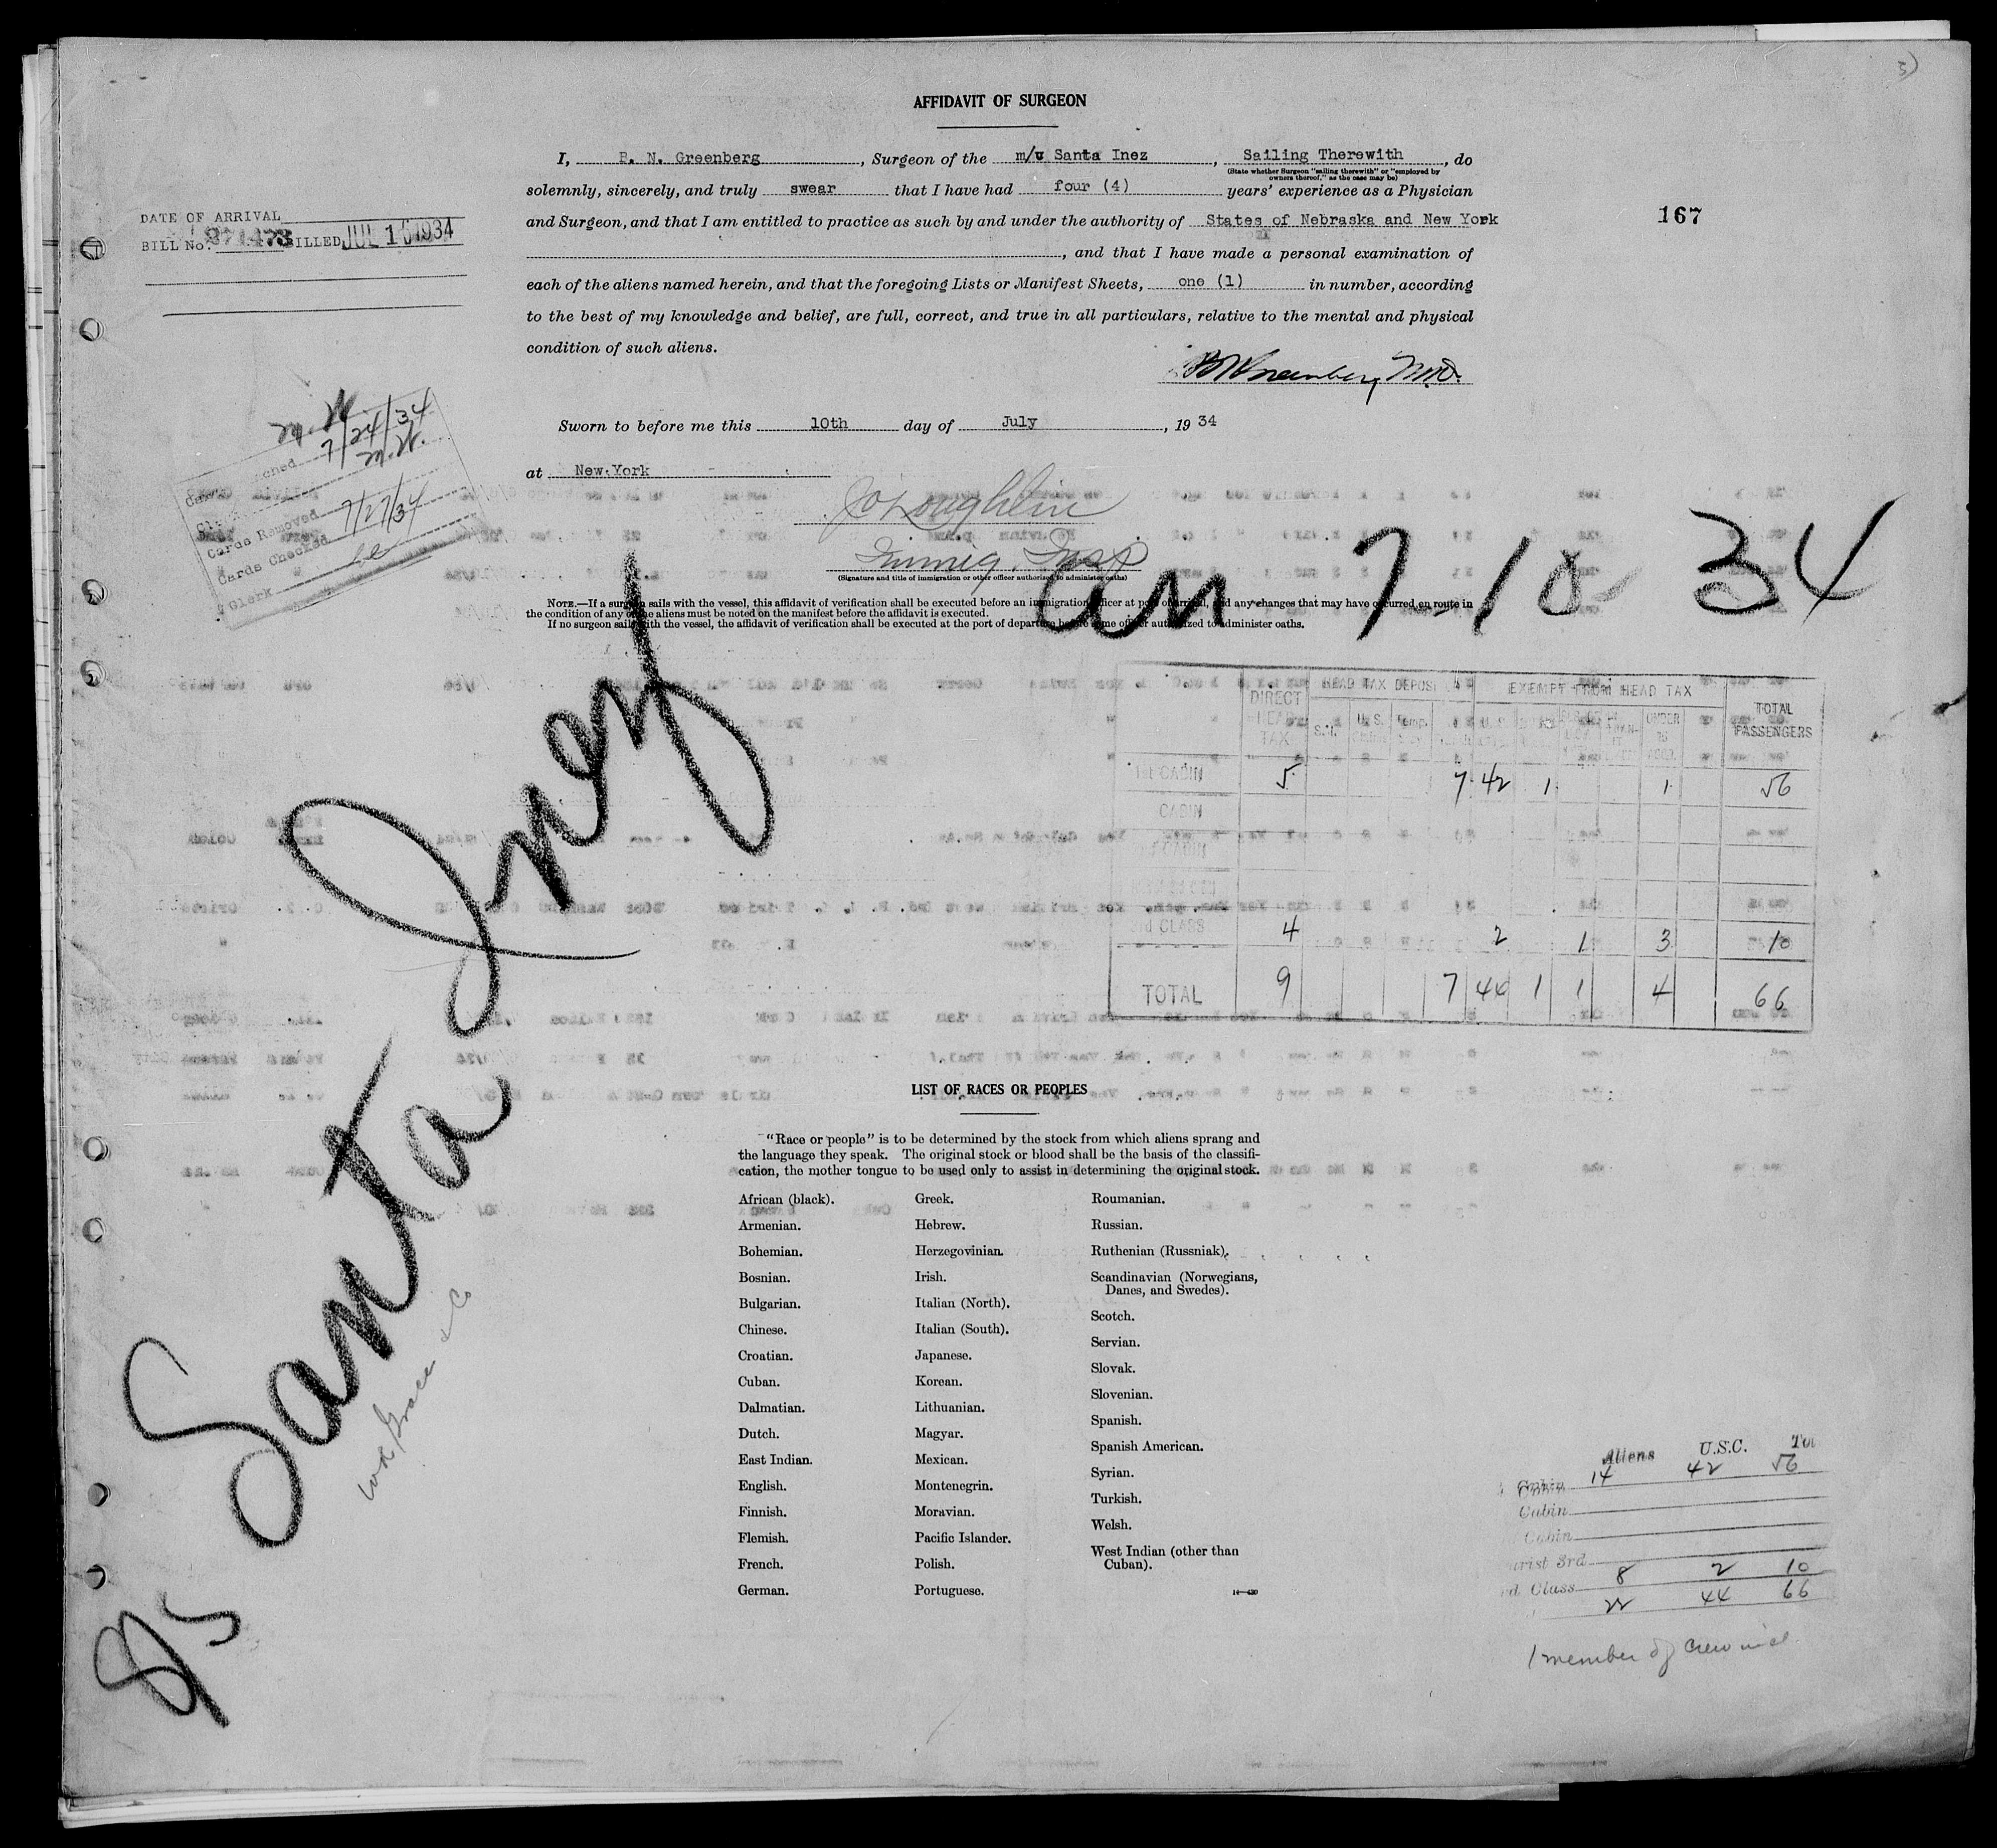 3)
AFFIDAVIT OF SURGEON
I, B. N. Greenberg, Surgeon of the m/v Santa Inez, Sailing Therewith, do
(State whether Surgeon "sailing therewith" or "employed by
owners thereof," as the case may be)
solemnly, sincerely, and truly swear that I have had four (4) years' experience as a Physician
and Surgeon, and that I am entitled to practice as such by and under the authority of States of Nebraska and New York
, and that I have made a personal examination of
each of the aliens named herein, and that the foregoing Lists or Manifest Sheets, one (1) in number, according
to the best of my knowledge and belief, are full, correct, and true in all particulars, relative to the mental and physical
condition of such aliens.
BNGreenberg M.D.
Sworn to before me this 10th day of July, 1934
at New York
JO'Loughlin
Immig. Insp
(Signature and title of immigration or other officer authorized to administer oaths)
NOTE.—If a surgeon sails with the vessel, this affidavit of verification shall be executed before an immigration officer at port of arrival, and any changes that may have occurred en route in
the condition of any of the aliens must be noted on the manifest before the affidavit is executed.
If no surgeon sails with the vessel, the affidavit of verification shall be executed at the port of departure before some officer authorized to administer oaths.
167
DATE OF ARRIVAL
BILL No. 271473 BILLED JUL 1 1934
M.W.
7/24/34
M.W.
Cards Removed 7/27/34
Cards Checked
Clerk
arr 7-10-34
S/S Santa Inez
Grace & Co
DIRECT HEAD TAX HEAD TAX DEPOSIT EXEMPT FROM HEAD TAX TOTAL PASSENGERS
U.S. UNDER 16
1st CABIN 5 7 42 1 1 56
CABIN
CABIN
3rd CLASS 4 2 1 3 10
TOTAL 9 7 44 1 1 4 66
LIST OF RACES OR PEOPLES
"Race or people" is to be determined by the stock from which aliens sprang and
the language they speak. The original stock or blood shall be the basis of the classifi-
cation, the mother tongue to be used only to assist in determining the original stock.
African (black).
Armenian.
Bohemian.
Bosnian.
Bulgarian.
Chinese.
Croatian.
Cuban.
Dalmatian.
Dutch.
East Indian.
English.
Finnish.
Flemish.
French.
German.
Greek.
Hebrew.
Herzegovinian.
Irish.
Italian (North).
Italian (South).
Japanese.
Korean.
Lithuanian.
Magyar.
Mexican.
Montenegrin.
Moravian.
Pacific Islander.
Polish.
Portuguese.
Roumanian.
Russian.
Ruthenian (Russniak).
Scandinavian (Norwegians,
Danes, and Swedes).
Scotch.
Servian.
Slovak.
Slovenian.
Spanish.
Spanish American.
Syrian.
Turkish.
Welsh.
West Indian (other than
Cuban).
Aliens U.S.C. Tot
Cabin 14 42 56
Cabin
Cabin
urist 3rd
d. Class 8 2 10
22 44 66
1 member of crew incl